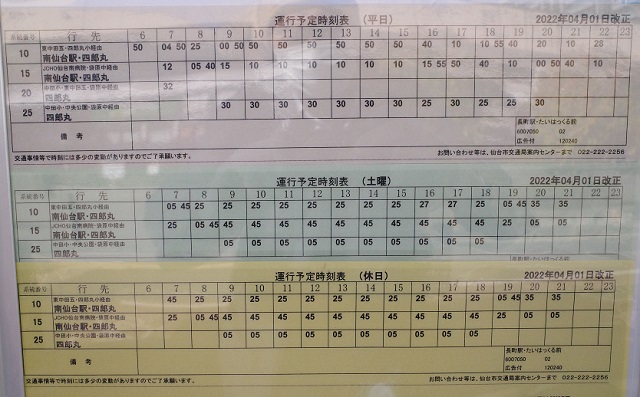 運行予定時刻表 (平日) 2022年04月01日改正
系統番号 行先 6 7 8 9 10 11 12 13 14 15 16 17 18 19 20 21 22 23
10 東中田五・四郎丸小経由 50 04 50 25 00 50 50 50 50 50 50 50 40 10 10 55 40 20 10 28
南仙台駅・四郎丸
15 JCHO仙台南病院・袋原中経由 12 05 40 15 10 10 10 10 10 10 10 15 55 50 40 10 00 50 40 10
南仙台駅・四郎丸
20 32
四郎丸
25 中田小・中央公園・袋原中経由 30 30 30 30 30 30 30 25 30 25 25 30
四郎丸
備考 長町駅・たいはっくる前
6007050 02
広告付 120240
交通事情等で時刻には多少の変動がありますのでご了承願います。 お問い合わせ等は、仙台市交通局案内センターまで 022-222-2256
運行予定時刻表 (土曜) 2022年04月01日改正
系統番号 行先 6 7 8 9 10 11 12 13 14 15 16 17 18 19 20 21 22 23
10 東中田五・四郎丸小経由 05 45 25 25 25 25 25 25 25 25 27 27 25 05 45 35 35
南仙台駅・四郎丸
15 JCHO仙台南病院・袋原中経由 25 05 45 45 45 45 45 45 45 45 45 45 45 25 05 05
南仙台駅・四郎丸
25 中田小・中央公園・袋原中経由 05 05 05 05 05 05 05 05 05 05
四郎丸
運行予定時刻表 (休日) 2022年04月01日改正
系統番号 行先 6 7 8 9 10 11 12 13 14 15 16 17 18 19 20 21 22 23
10 東中田五・四郎丸小経由 45 25 25 25 25 25 25 25 25 25 25 25 05 45 35 35
南仙台駅・四郎丸
15 JCHO仙台南病院・袋原中経由 25 05 45 45 45 45 45 45 45 45 45 45 45 25 05 05
南仙台駅・四郎丸
25 中田小・中央公園・袋原中経由 05 05 05 05 05 05 05 05 05 05
四郎丸
備考 長町駅・たいはっくる前
6007050 02
広告付 120240
交通事情等で時刻には多少の変動がありますのでご了承願います。 お問い合わせ等は、仙台市交通局案内センターまで 022-222-2256